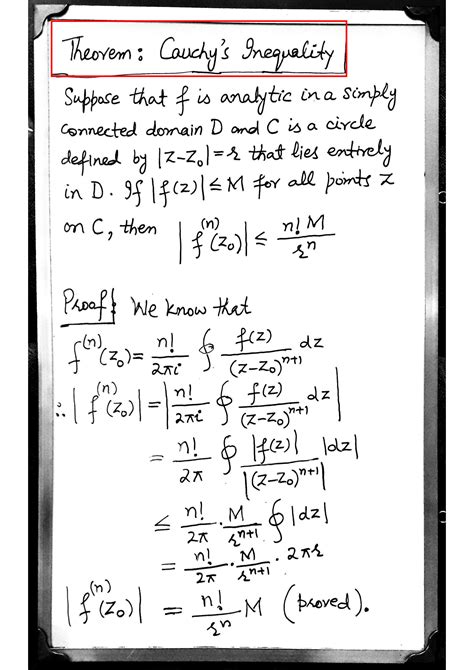 Theorem: Cauchy's Inequality
Suppose that f is analytic in a simply
connected domain D and C is a circle
defined by |z-z₀|=r that lies entirely
in D. If |f(z)| ≤ M for all points z
on C, then |f⁽ⁿ⁾(z₀)| ≤ n! M / rⁿ
Proof: We know that
f⁽ⁿ⁾(z₀) = n!/2πi ∮ f(z)/(z-z₀)ⁿ⁺¹ dz
∴ |f⁽ⁿ⁾(z₀)| = |n!/2πi ∮ f(z)/(z-z₀)ⁿ⁺¹ dz|
= n!/2π ∮ |f(z)|/|(z-z₀)ⁿ⁺¹| |dz|
≤ n!/2π · M/rⁿ⁺¹ ∮ |dz|
= n!/2π · M/rⁿ⁺¹ · 2πr
|f⁽ⁿ⁾(z₀)| = n!/rⁿ M (proved).